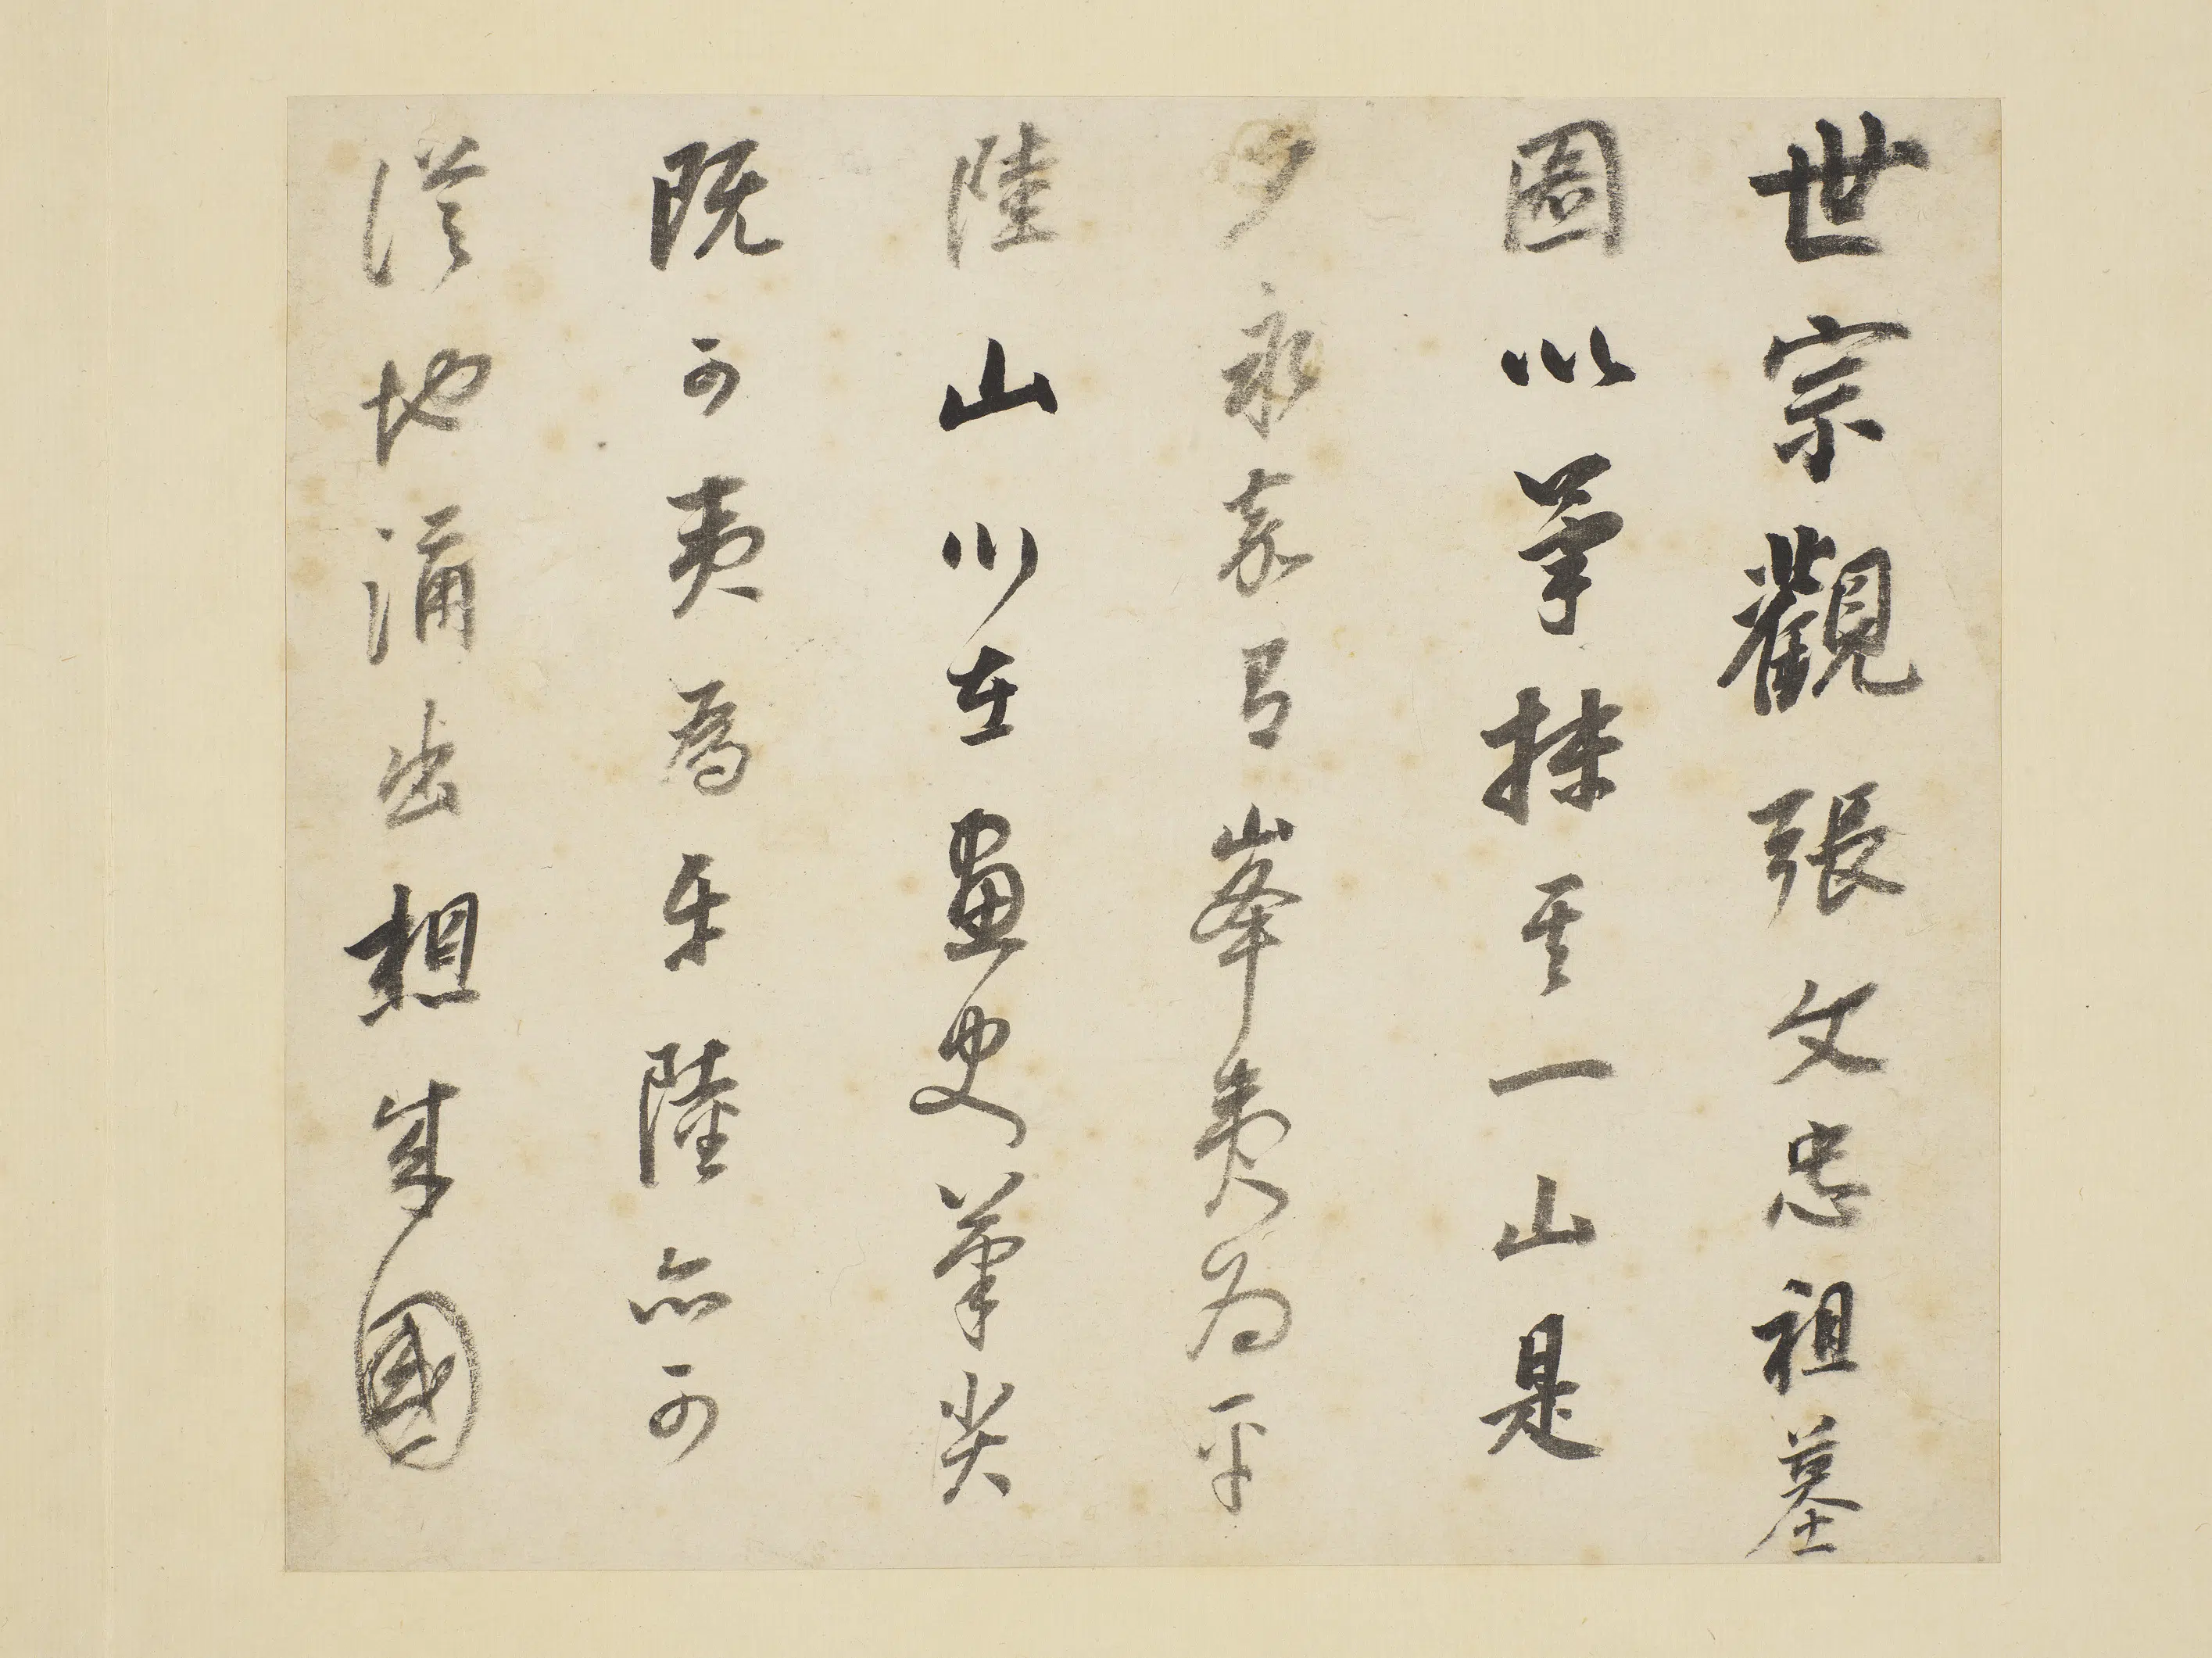 世宗觀張文忠祖墓
圖以筆抹其一山是
夕永嘉有峯夷為平
陸山川在畫史筆尖
既可夷為平陸亦可
從地涌出想來國